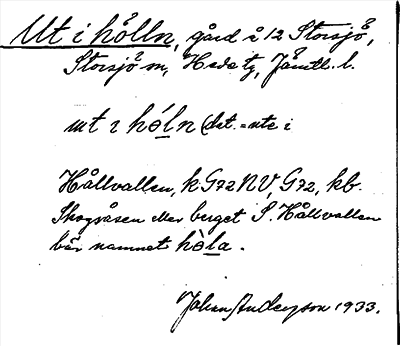 Ut i hölln, gård å 12 Storsjö,
Storsjö sn, Hede tg, Jämtl. l.
ut ɪ hó̱ln (dat. = ute i
Hållvallen, k G72 NV, G72, kb.
Skogsåsen eller berget S. Hållvallen
bär namnet hò̱la.
Johan Anderzson 1933.